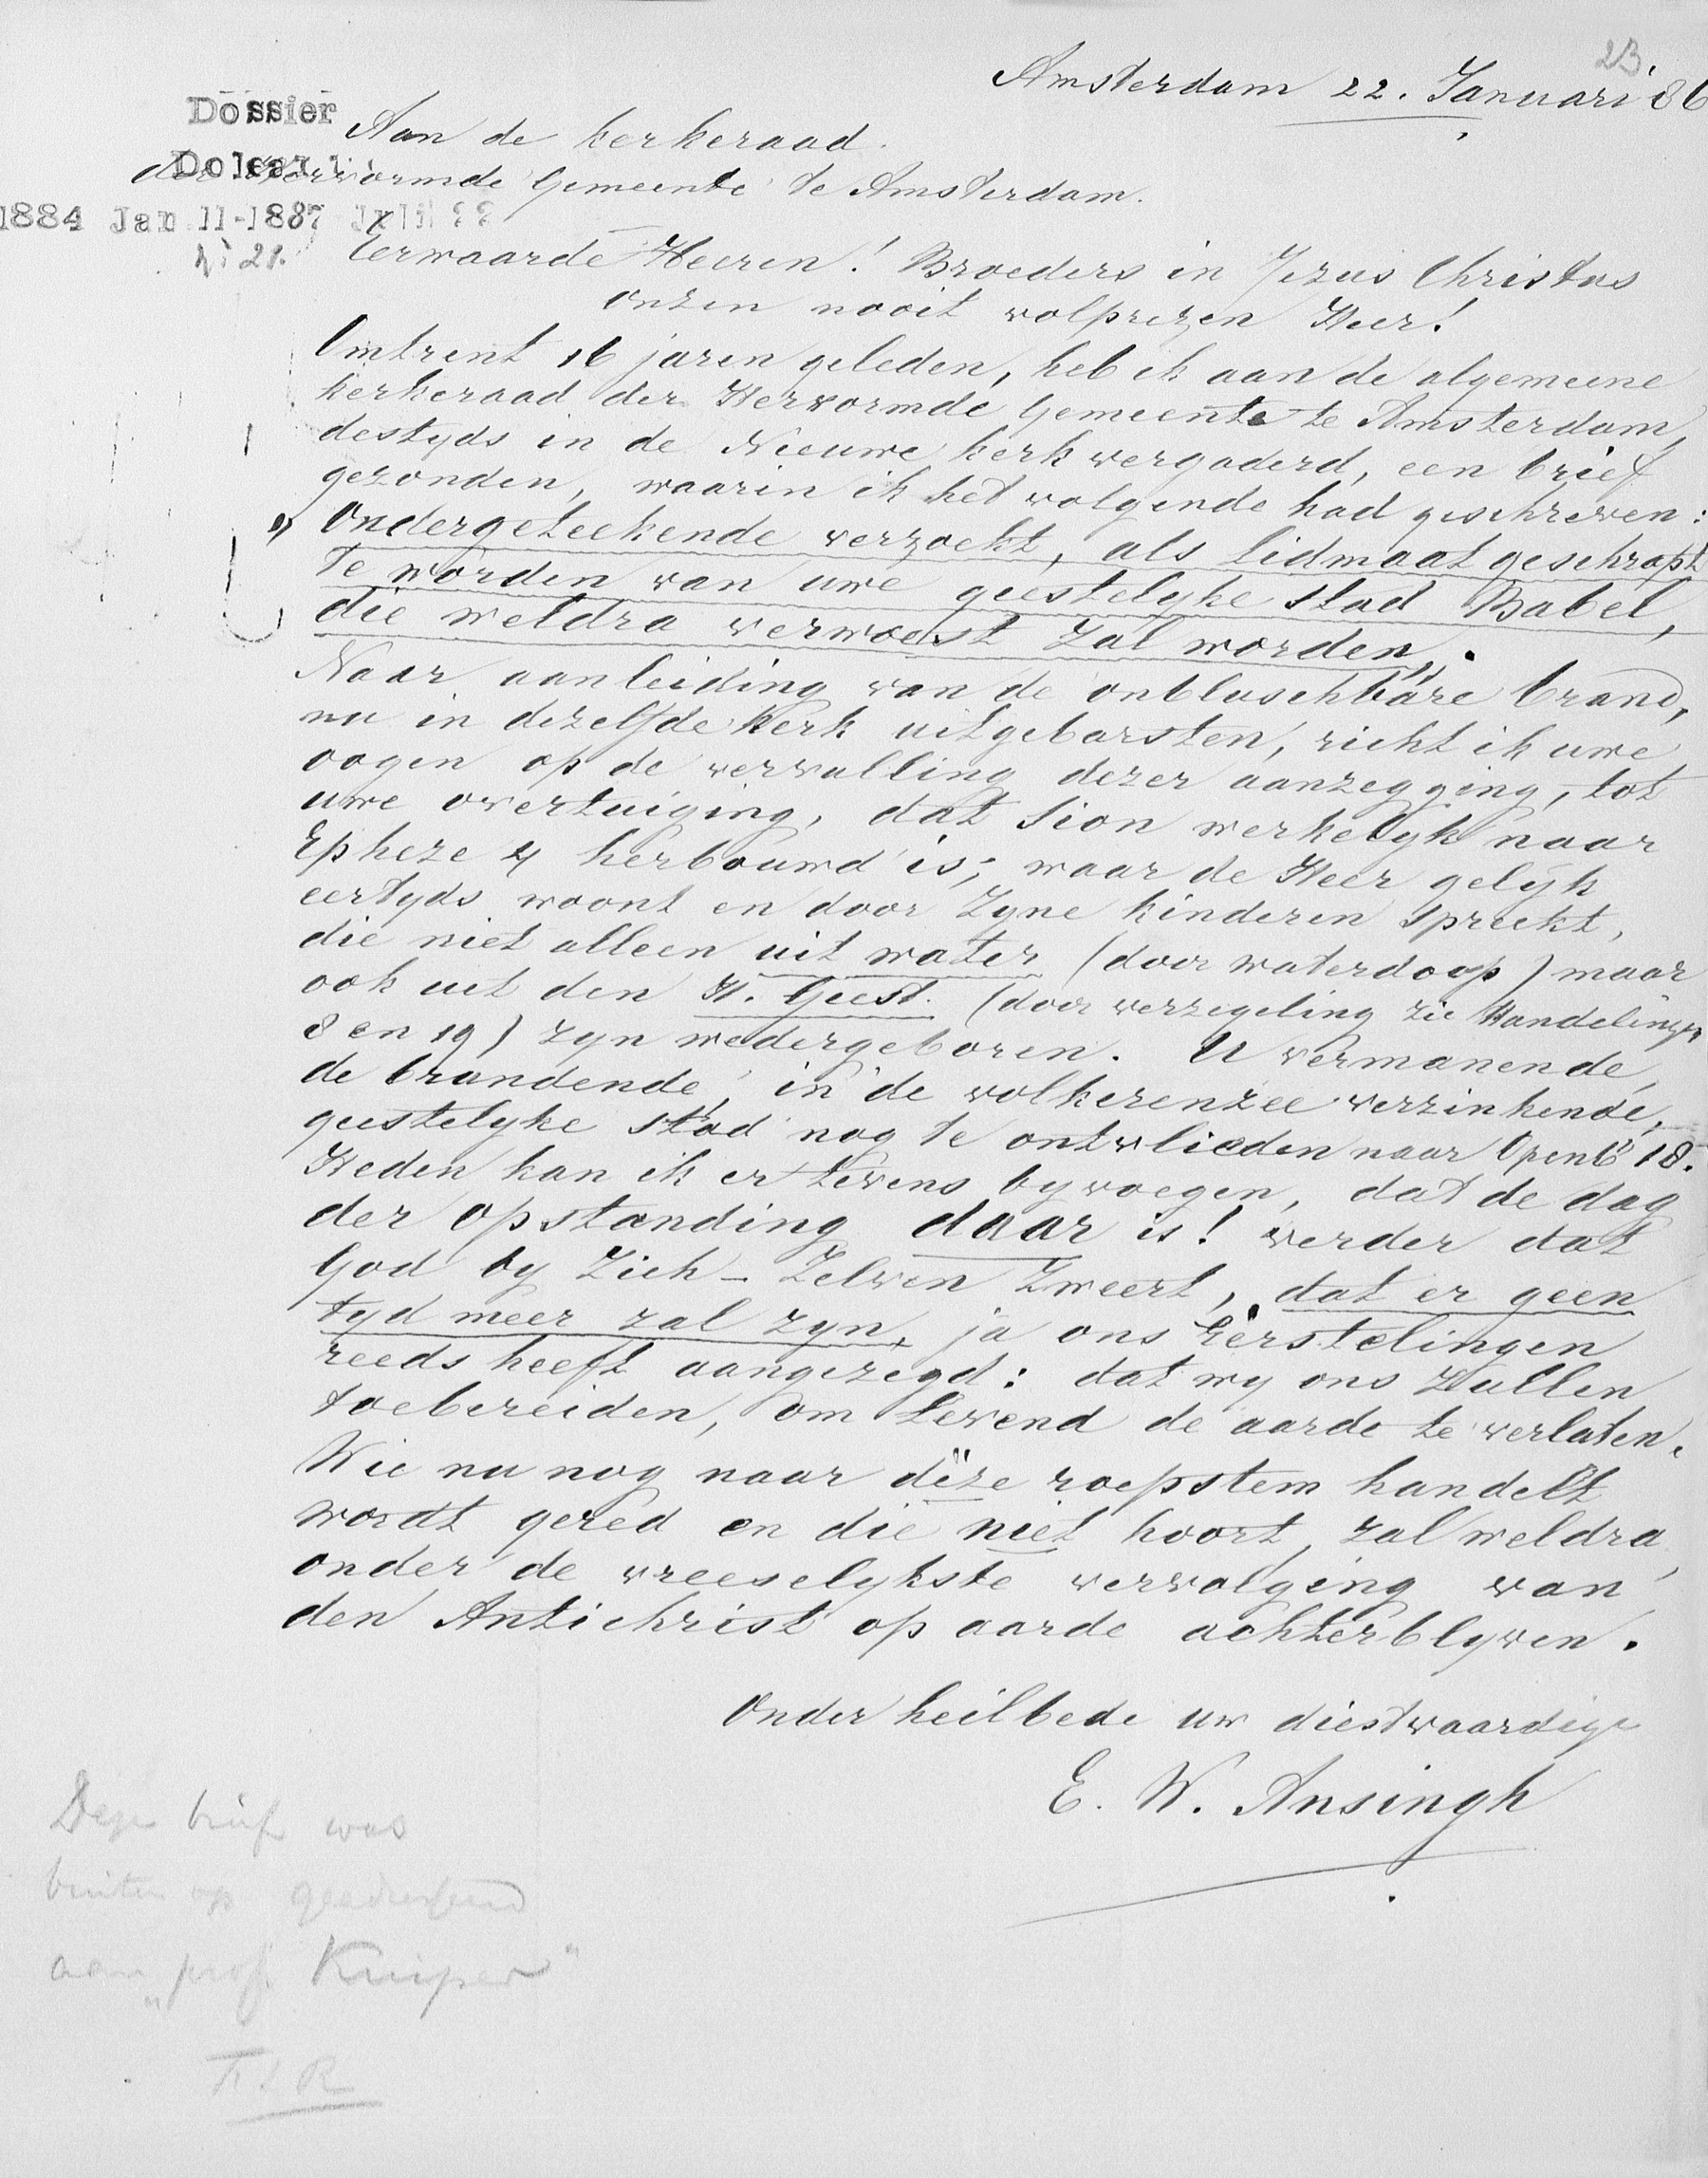 23
Amsterdam 22. Januari '86
Dossier
Aan de kerkeraad.
der Hervormde Gemeente te Amsterdam.
1884 Jan 11-1887 Juli ??
No 21.
Eerwaarde Heeren! Broeders in Jezus Christus
onzen nooit volprezen Heer!
Omtrent 16 jaren geleden, heb ik aan de algemeene
kerkeraad der Hervormde Gemeente te Amsterdam,
destyds in de Nieuwe kerk vergaderd, een brief
gezonden, waarin ik het volgende had geschreven:
„Ondergeteekende verzoekt, als lidmaat geschrapt
te worden van uwe geestelyke stad Babel,
die weldra verwoest zal worden„.
Naar aanleiding van de onbluschbare brand,
nu in dezelfde kerk uitgebarsten, richt ik uwe
oogen op de vervulling dezer aanzegging, tot
uwe overtuiging, dat Sion werkelyk naar
Epheze 4 herbouwd is; waar de Heer gelyk
eertyds woont en door Zyne kinderen spreekt,
die niet alleen uit water (door waterdoop) maar
ook uit den H. Geest. (door verzegeling zie Handelingen
8 en 19) zyn wedergeboren. U vermanende,
de brandende, in de volkerenzee verzinkende,
geestelyke stad nog te ontvlieden naar Openb 18.
Heden kan ik er tevens byvoegen, dat de dag
der opstanding daar is! verder dat
God by Zich-Zelven zweert, dat er geen
tyd meer zal zyn, ja ons Eerstelingen
reeds heeft aangezegd: dat wy ons zullen
toebereiden, om levend de aarde te verlaten.
Wie nu nog naar déze roepstem handelt
wordt gered en die niet hoort, zal weldra
onder de vreeselykste vervolging van
den Antichrist op aarde achterblyven.
Onder heilbede uw diestvaardige
E. W. Ansingh
Deze brief was
buiten op geadresseerd
aan „prof. Kuiper"